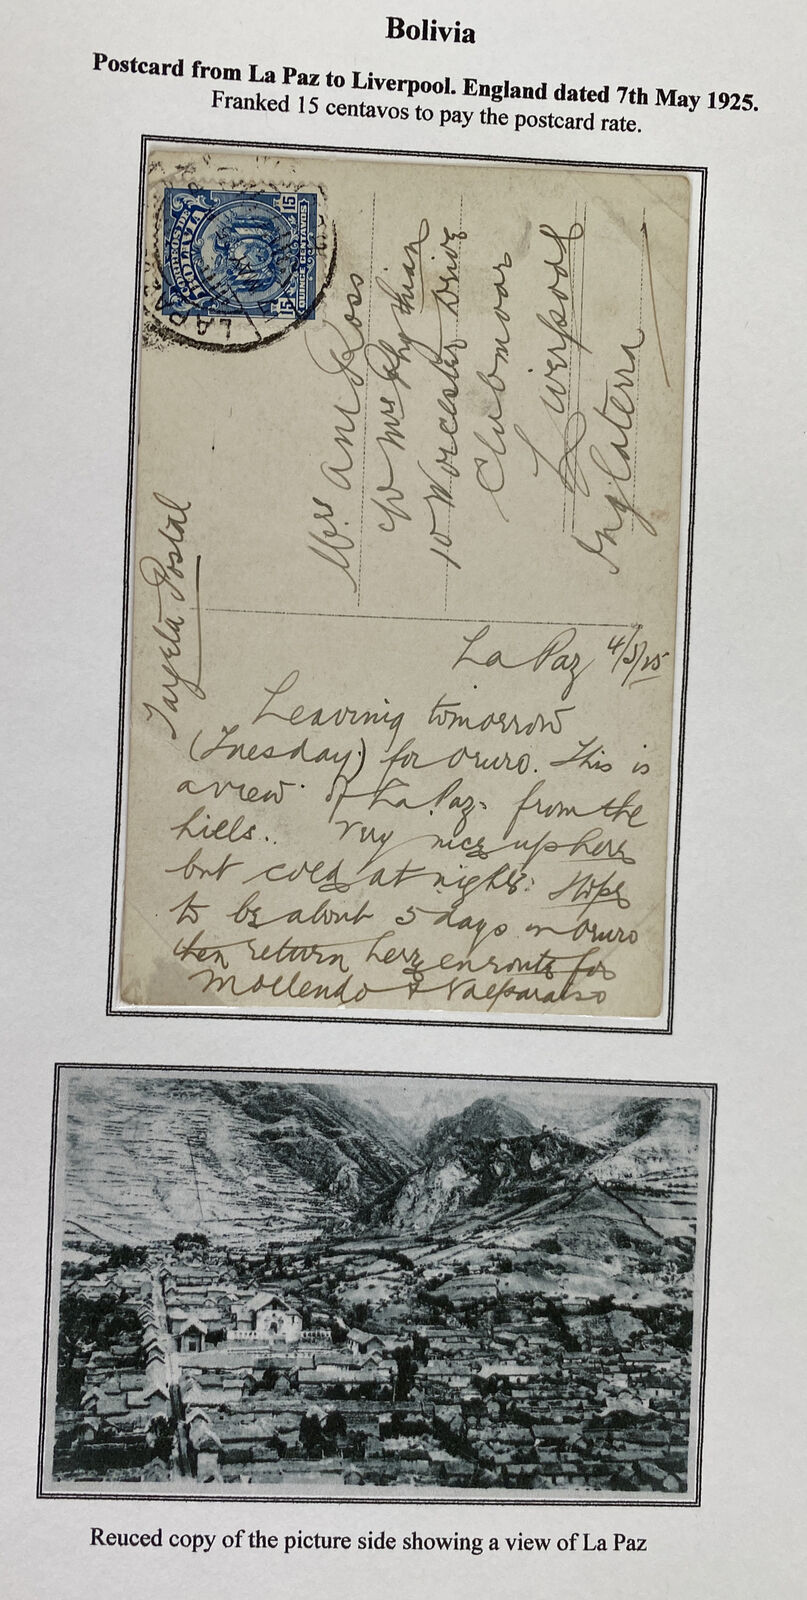 Bolivia
Postcard from La Paz to Liverpool. England dated 7th May 1925.
Franked 15 centavos to pay the postcard rate.
CORREOS DE
BOLIVIA
15 15
QUINCE CENTAVOS
LA PAZ
Mrs. Ross
c/o Mrs Phythian
10 Worcester Drive
Clubmoor
Liverpool
Inglaterra
Tarjeta Postal
La Paz 4/5/25
Leaving tomorrow
(Tuesday) for Oruro. This is
a view of La Paz from the
hills.. Very nice up here
but cold at nights. Hope
to be about 5 days in Oruro
then return here en route for
Mollendo & Valparaiso
Reuced copy of the picture side showing a view of La Paz